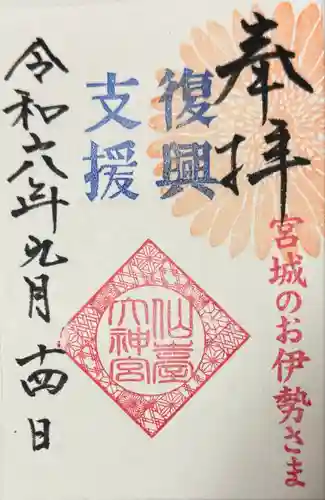 奉拝
宮城のお伊勢さま
復興
支援
仙臺
大神宮
令和六年九月十四日